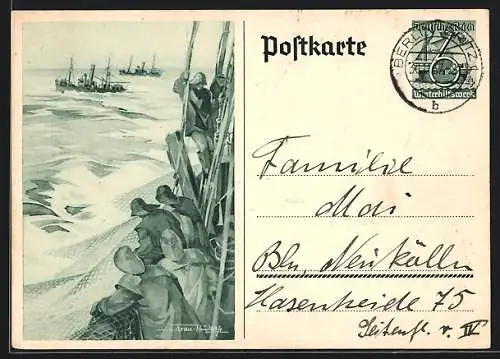 Postkarte
Deutsches Reich
6
Winterhilfswerk
BERLIN
b
Familie
Mai
Bln, Neukölln
Hasenheide 75
Seitenfl. v. IV